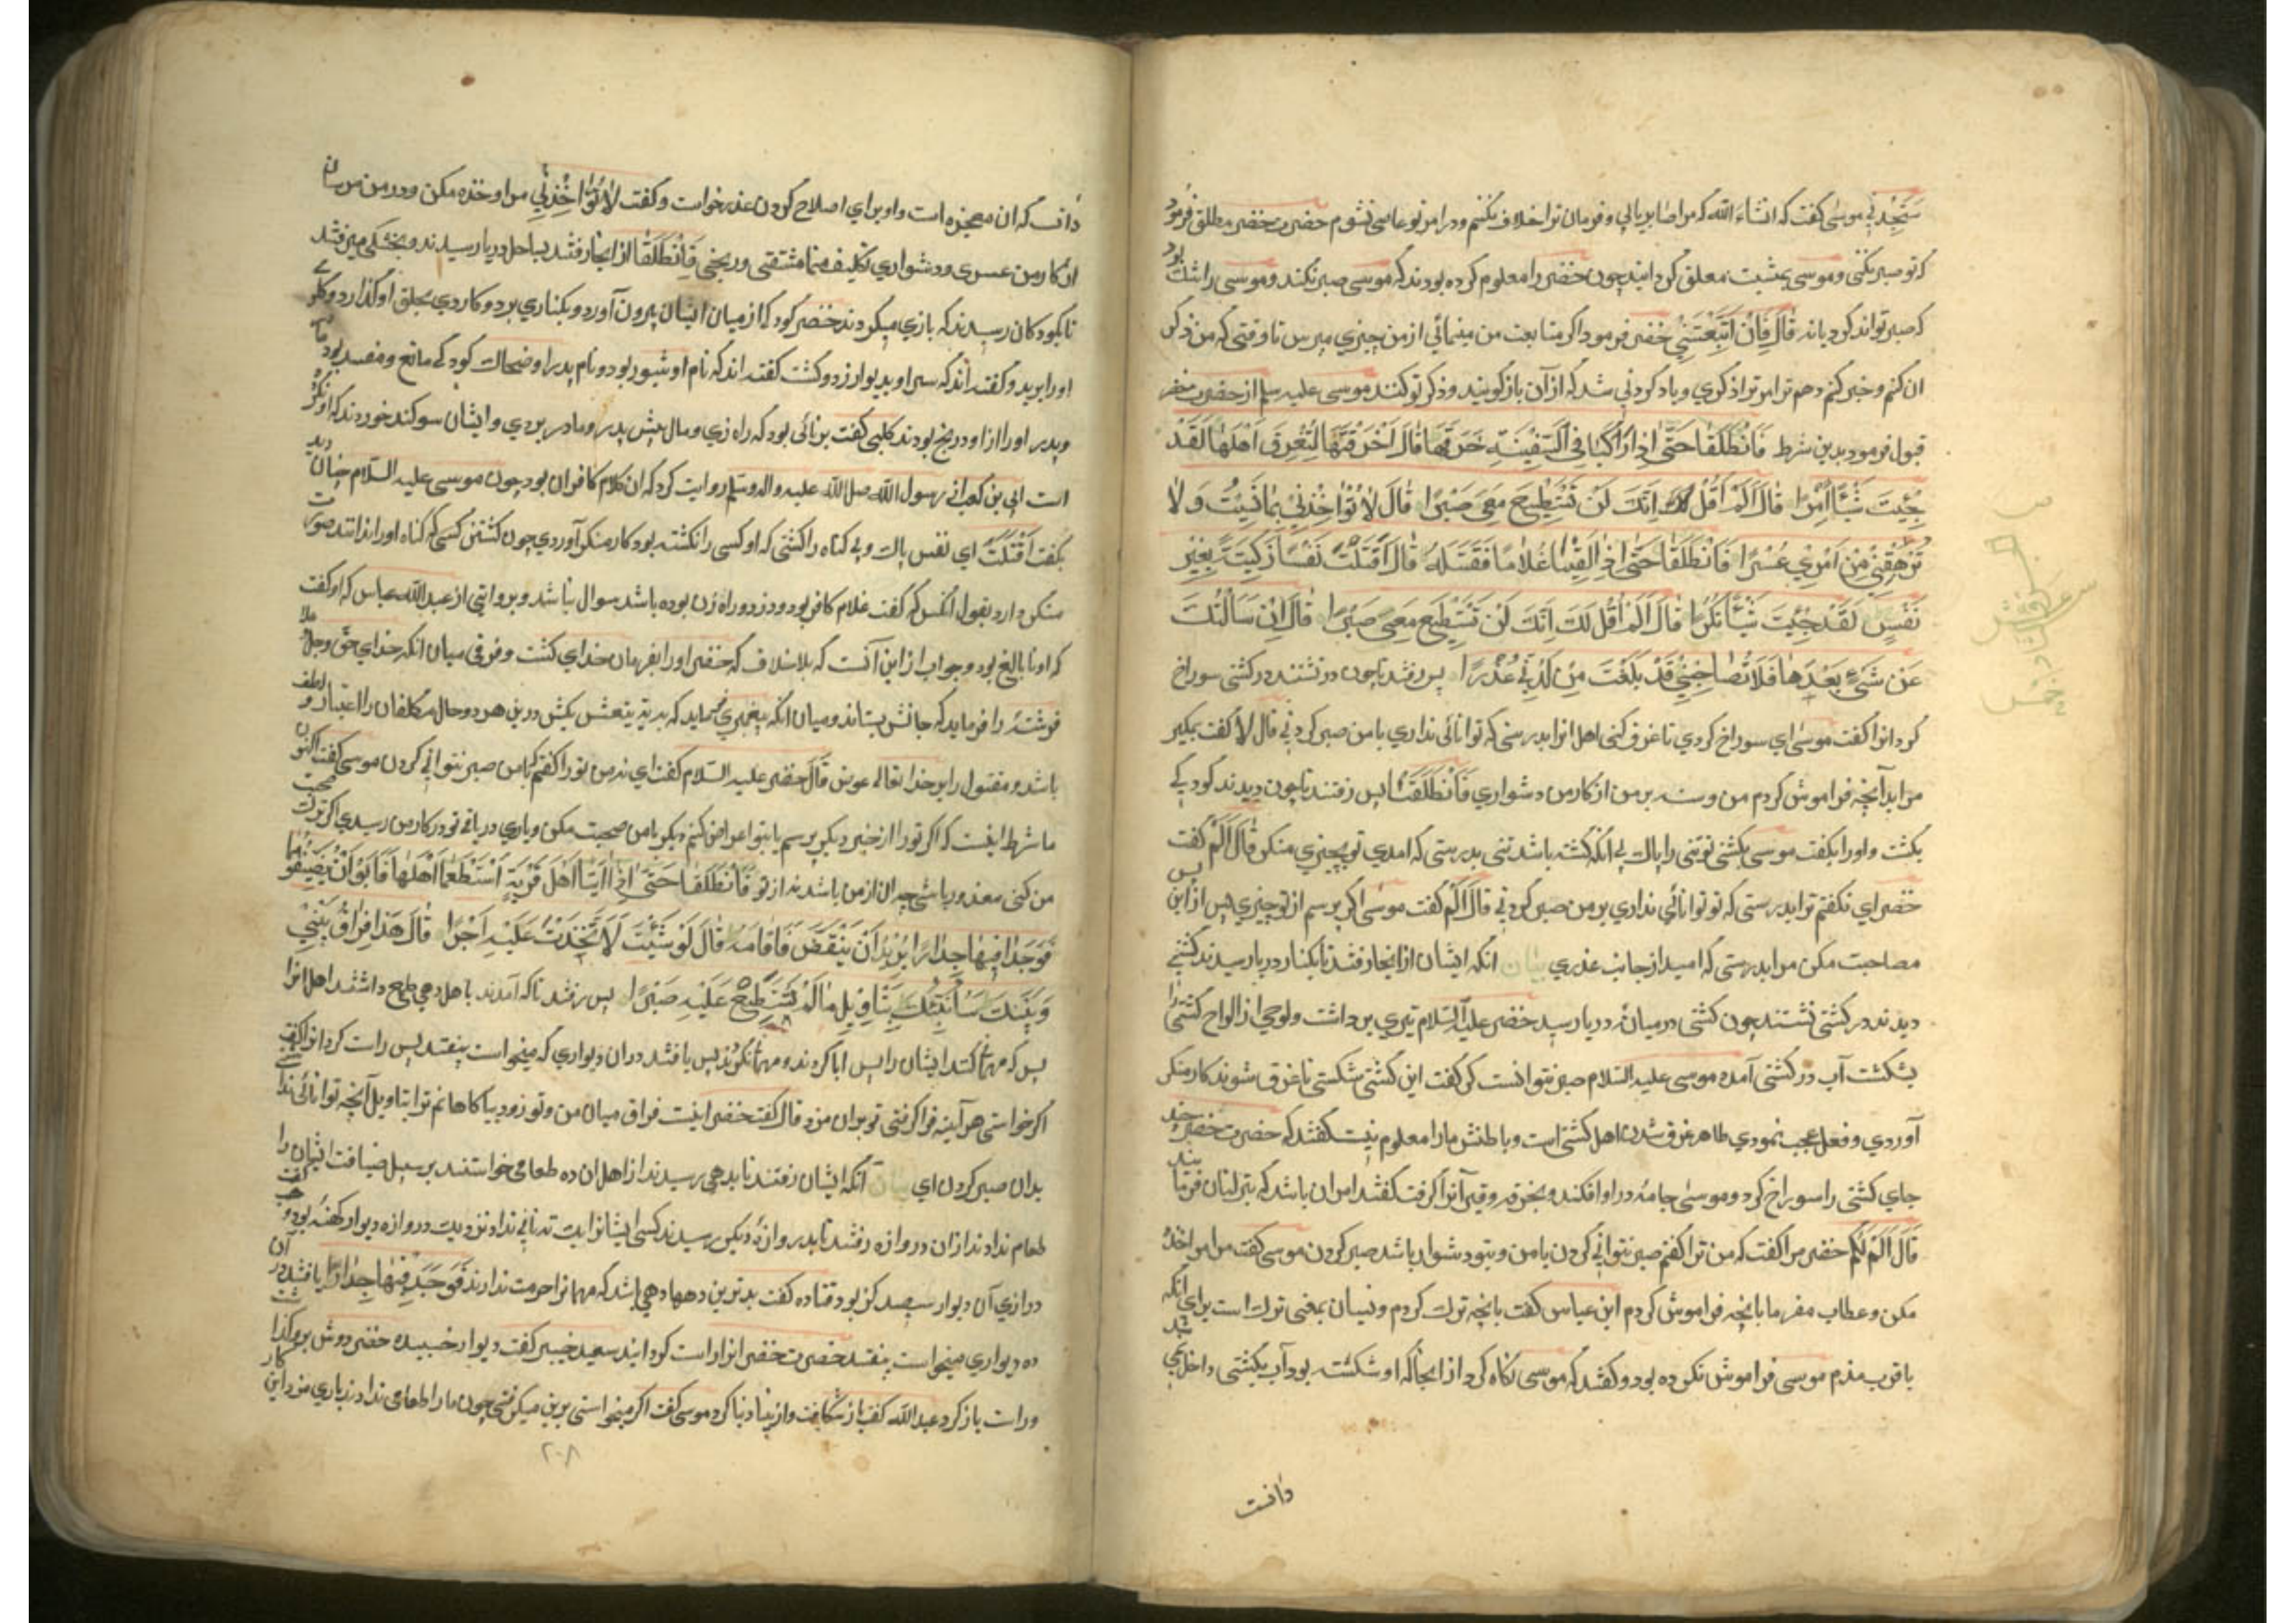 سَتَجِدُنِي موسی گفت که انشاءَ الله که مرا صابر یابی و فرمان ترا خلاف نکنم و در امر تو عاصی نشوم حضرت خضر مطلق فرمود
که تو صبر نکنی و موسی بمشیت معلق گردانید چون خضر را معلوم کرده بودند که موسی صبر نکند و موسی را شک بود
که صبر تواند کرد یا نه قَالَ فَاِنْ اتَّبَعْتَنِي خضر فرمود اگر متابعت من مینمائی از من چیزی مپرس تا وقتی که من ذکر
ان کنم و خبر کنم دهم ترا مر ترا ذکری و یاد کردنی شد که از آن باز گویند و ذکر تو کنند موسی علیه سلم از حضرت خضر
قبول فرمود بدین شرط فَانْطَلَقَا حَتَّى اِذَا رَكِبَا فِي السَّفِينَةِ خَرَقَهَا قَالَ اَخَرَقْتَهَا لِتُغْرِقَ اَهْلَهَا لَقَدْ
جِئْتَ شَيْئًا اِمْرًا قَالَ اَلَمْ اَقُلْ لَكَ اِنَّكَ لَنْ تَسْتَطِيعَ مَعِيَ صَبْرًا قَالَ لَا تُؤَاخِذْنِي بِمَا نَسِيتُ وَلَا
تُرْهِقْنِي مِنْ اَمْرِي عُسْرًا فَانْطَلَقَا حَتَّى اِذَا لَقِيَا غُلَامًا فَقَتَلَهُ قَالَ اَقَتَلْتَ نَفْسًا زَكِيَّةً بِغَيْرِ
نَفْسٍ لَقَدْ جِئْتَ شَيْئًا نُكْرًا قَالَ اَلَمْ اَقُلْ لَكَ اِنَّكَ لَنْ تَسْتَطِيعَ مَعِيَ صَبْرًا قَالَ اِنْ سَاَلْتُكَ
عَنْ شَيْءٍ بَعْدَهَا فَلَا تُصَاحِبْنِي قَدْ بَلَغْتَ مِنْ لَدُنِّي عُذْرًا پس رفتند تا چون در نشتند در کشتی سوراخ
کرد انرا گفت موسی ای سوراخ کردی تا غرق کنی اهل انرا بدرستی که توانائی نداری با من صبر کردنی قال لا گفت مگیر
مرا بدآنچه فراموش کردم من و منه بر من از کار من دشواری فَانْطَلَقَا پس رفتند تا چون دیدند کودکی
بکشت و اورا بگفت موسی بکشتی تو تنی را پاک بی انکه کشته باشد تنی بدرستی که امدی تو بچیزی منکر قَالَ اَلَمْ گفت
خضر ای نگفتم ترا بدرستی که تو توانائی نداری بر من صبر کردنی قال اَلَم گفت موسی اگر پرسم از تو چیزی پس از این پس
مصاحبت مکن مرا بدرستی که امید از جانب عذری بیان انکه ایشان از انجا رفتند تا بکنار دریا رسیدند کشتیی
دیدند در کشتی نشتند چون کشتی در میانهٔ دریا رسید خضر علیه السلام تبری برداشت و لوحی از الواح کشتی را
بشکست آب در کشتی آمده موسی علیه السلام صبر نتوانست کرد گفت این کشتی شکستی تا غرق شوند کار منکر
آوردی و فعل عجب نمودی ظاهر غرق شدن اهل کشتی است و باطنش مارا معلوم نیست گفتند که حضرت خضر چند
جای کشتی را سوراخ کرد و موسی جامه در او افکند و بخرقه و قیر آنرا گرفت گفتند امر ان باشد که
قَالَ اَلَمْ حضر مرا گفت که من ترا گفتم صبر نتوانی کردن با من و بتو دشوار باشد صبر کردن موسی گفت مرا مواخذه
مکن و عطاب مفرما بانچه فراموش کردم ابن عباس گفت بانچه ترک کردم و نسیان بمعنی ترک است برای انکه
موسی فراموش نکرده بود و گفتند که موسی نگاه کرد از انجا که او شکسته بود آب بکشتی داخل نمی شد
دانست
دانست که ان معجزه است و او برای اصلاح کردن عذر خواست و گفت لَا تُؤَاخِذْنِي مرا مواخذه مکن و در من مرسان
از کار من عسری و دشواری تکلیف منما مشقتی و رنجی فَانْطَلَقَا از انجا رفتند بساحل دریا رسیدند و بخشکی میرفتند
تا بکودکان رسیدند که بازی میکردند خضر کودکی از میان ایشان بیرون آورد و بکناری برد و کاردی بحلق او گذارد و گلوی
اورا برید و گفته اند که سر او بدیوار زد و کشت گفته اند که نام او شیور بود و نام پدر او ضحاک کودکی مانع و مفسد بود
و پدر اورا از او در رنج بودند کلبی گفت برنائی بود که راه زدی و مال پیش پدر و مادر بردی و ایشان سوکند خوردند که او نکرده
است ابی بن کعب از رسول الله صلی الله علیه و آله وسلم روایت کرد که ان کلام کافران بود چون موسی علیه السلام چنان دید
بگفت اَقَتَلْتَ ای نفس پاک و بی گناه را کشتی که او کسی را نکشته بود کار منکر آوردی چون کشتن کسی که گناه اورا ندانند صورت
منکر دارد بقول انکس که گفت غلام کافر بود و دزد و راه زن بوده باشد سوال نباشد و بروایتی از عبد الله عباس که او گفت
که او نا بالغ بود و جواب از این آنست که بلا خلاف که خضر اورا بفرمان خدای کشت و فرقی میان انکه خدای عز و جل
فرشتهٔ را فرماید که جانش بستاند و میان انکه پیغمبری فرماید که بکش درین هر دو حال مکلفان را اعتبار و لطف
باشد و مقتول را بر خدا تعالی عوض قَالَ خضر علیه السلام گفت ای نه من تورا گفتم با من صبر نتوانی کردن موسی گفت اکنون
ما شرط اینست که اگر تورا از خبر دیگر پرسم یا بتو اعراض کنم دیگر با من صحبت مکن و یاری در باقی تو در کار من رسیدی اگر ترک صحبت
من کنی معذور باشی چه ان از من باشد نه از تو فَانْطَلَقَا حَتَّى اِذَا اَتَيَا اَهْلَ قَرْيَةٍ اسْتَطْعَمَا اَهْلَهَا فَاَبَوْا اَنْ يُضَيِّفُوهُمَا
فَوَجَدَا فِيهَا جِدَارًا يُرِيدُ اَنْ يَنْقَضَّ فَاَقَامَهُ قَالَ لَوْ شِئْتَ لَاتَّخَذْتَ عَلَيْهِ اَجْرًا قَالَ هَذَا فِرَاقُ بَيْنِي
وَبَيْنِكَ سَاُنَبِّئُكَ بِتَاْوِيلِ مَا لَمْ تَسْتَطِعْ عَلَيْهِ صَبْرًا پس رفتند تا که آمدند باهل دهی طمع داشتند اهل انرا
پس که مهمان کنند ایشان را پس ابا کردند و مهمان نکردند پس یافتند در ان دیواری که میخواست بیفتد پس راست کرد انرا گفت
اگر خواستی هر آینه فرا گرفتی تو بر ان مزد قال گفت خضر اینست فراق میان من و تو زود بیاگاهانم ترا بتاویل آنچه توانائی نداشتی
بدان صبر کردن ای بیان آنکه ایشان رفتند تا بدهی رسیدند از اهل ان ده طعامی خواستند بر سبیل ضیافت ایشان را
طعام ندادند از ان دروازه رفتند تا بدروازهٔ دیگر رسیدند کسی ایشانرا نانی نداد نزدیک دروازه دیوار کهنهٔ بود
درازی آن دیوار سیصد گز بود قتاده گفت بدترین دهها دهی باشد که مهمانرا حرمت ندارند فَوَجَدَا فِيهَا جِدَارًا یافتند در آن
ده دیواری میخواست بیفتد حضرت خضر انرا راست گردانید سعید جبیر گفت دیوار خسبیده خضر دوش برو گذاشت
و راست باز کرد عبد الله گفت باز شکافت و از بنیاد بنا کرد موسی گفت اگر میخواستی برین میگرفتی چون مارا طعامی ندادند باری مزد این کار
۲۰۸